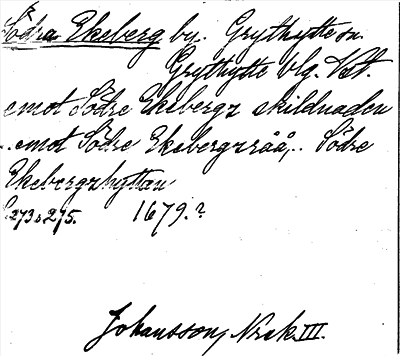 Södra Ekeberg by. Grythytte sn.
Grythytte blg. Vst.
emot Södre Ekebergz skildnaden
..emot Södre Ekebergzråå,.. Södre
Ekebergzhyttan
S. 273 o 275. 1679.?
Johansson, Norak III.